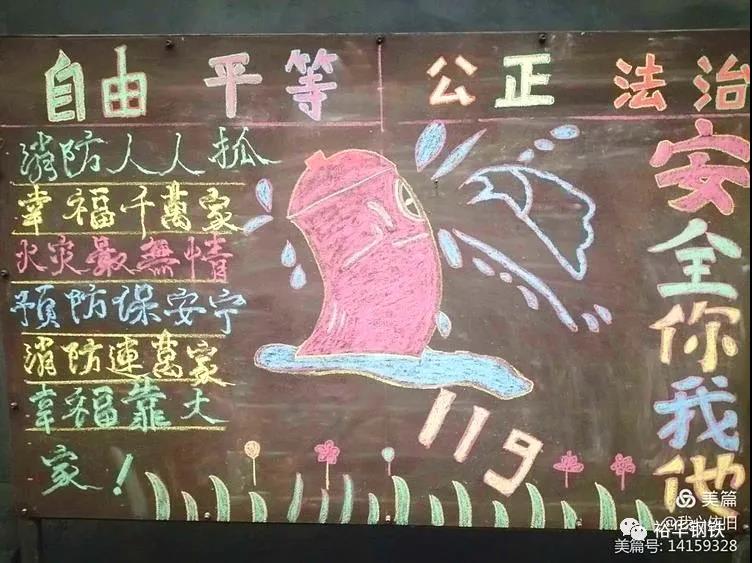 自由 平等 公正 法治
消防人人抓
幸福千萬家
火灾最無情
預防保安宁
消防連萬家
幸福靠大
家！
119
安全你我他
美篇
裕华钢铁
美篇号: 14159328